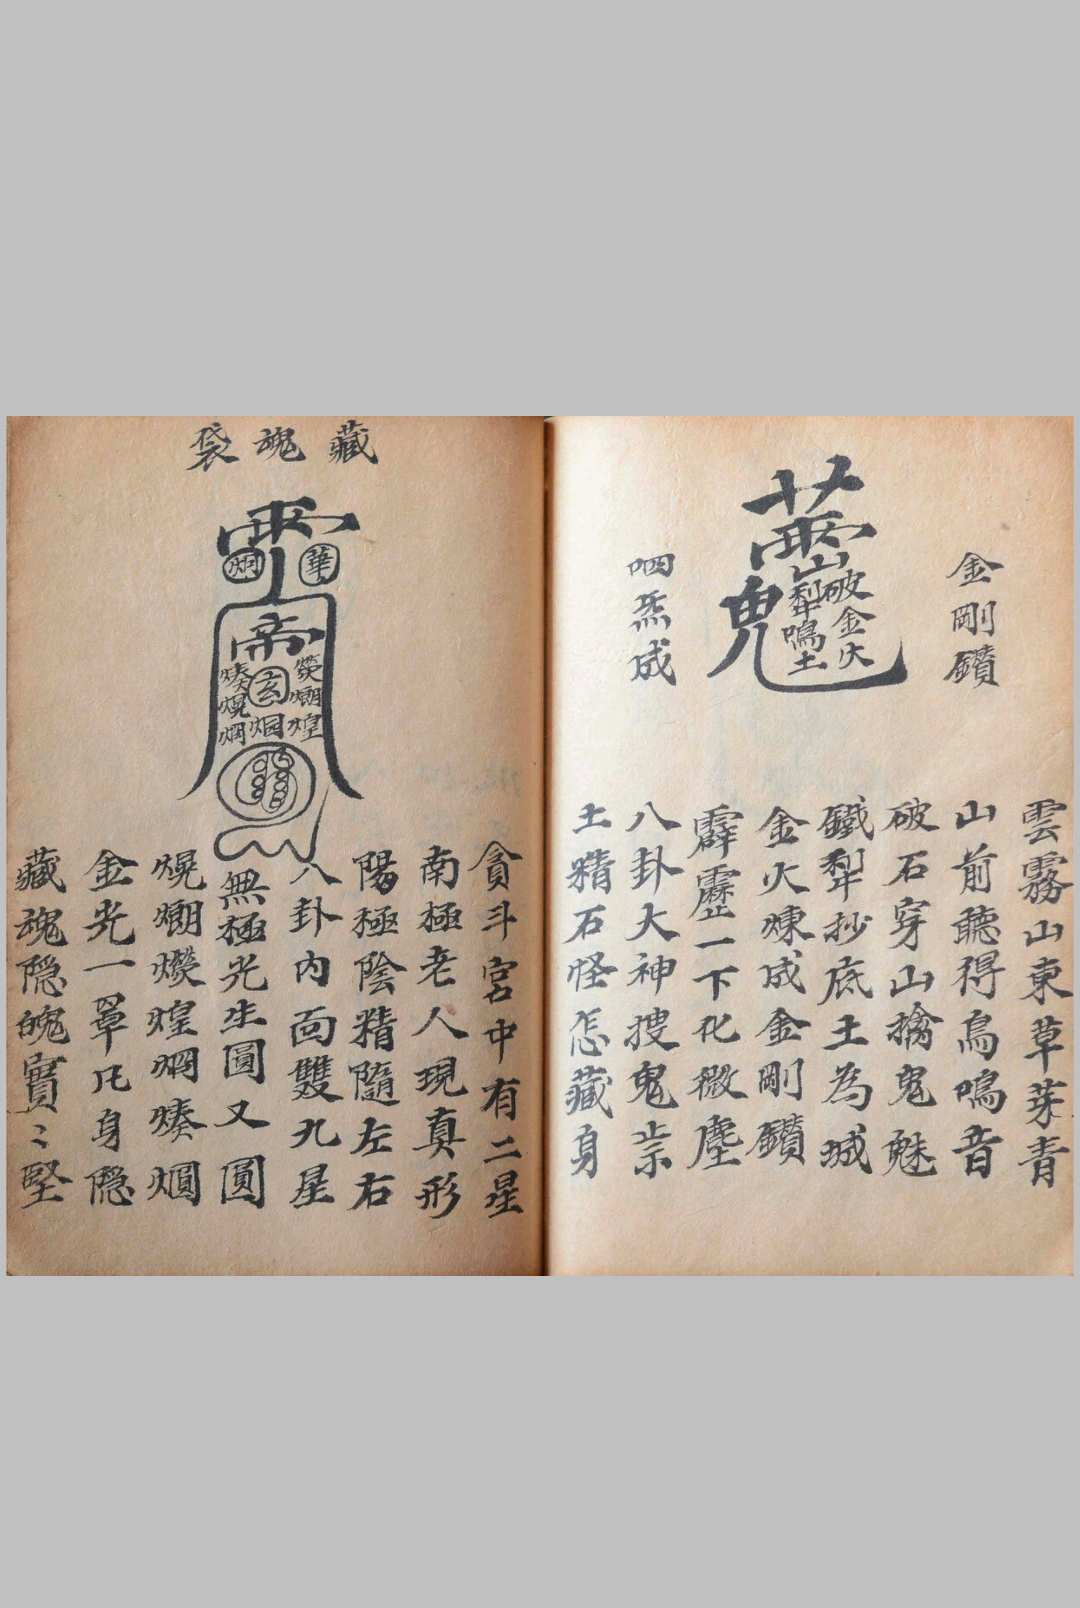 金剛鑽
山
破金火
犁鳴土
鬼
成
雲霧山東草芽青
山前聽得鳥鳴音
破石穿山擒鬼魅
鐵犁抄底土為城
金火煉成金剛鑽
霹靂一下化微塵
八卦大神搜鬼祟
土精石怪怎藏身
藏魂袋
華
炯
玄
煌
貪斗宮中有二星
南極老人現真形
陽極陰精隨左右
八卦內面雙九星
無極光生圓又圓
金光一罩凡身隱
藏魂隐魄寶〻堅